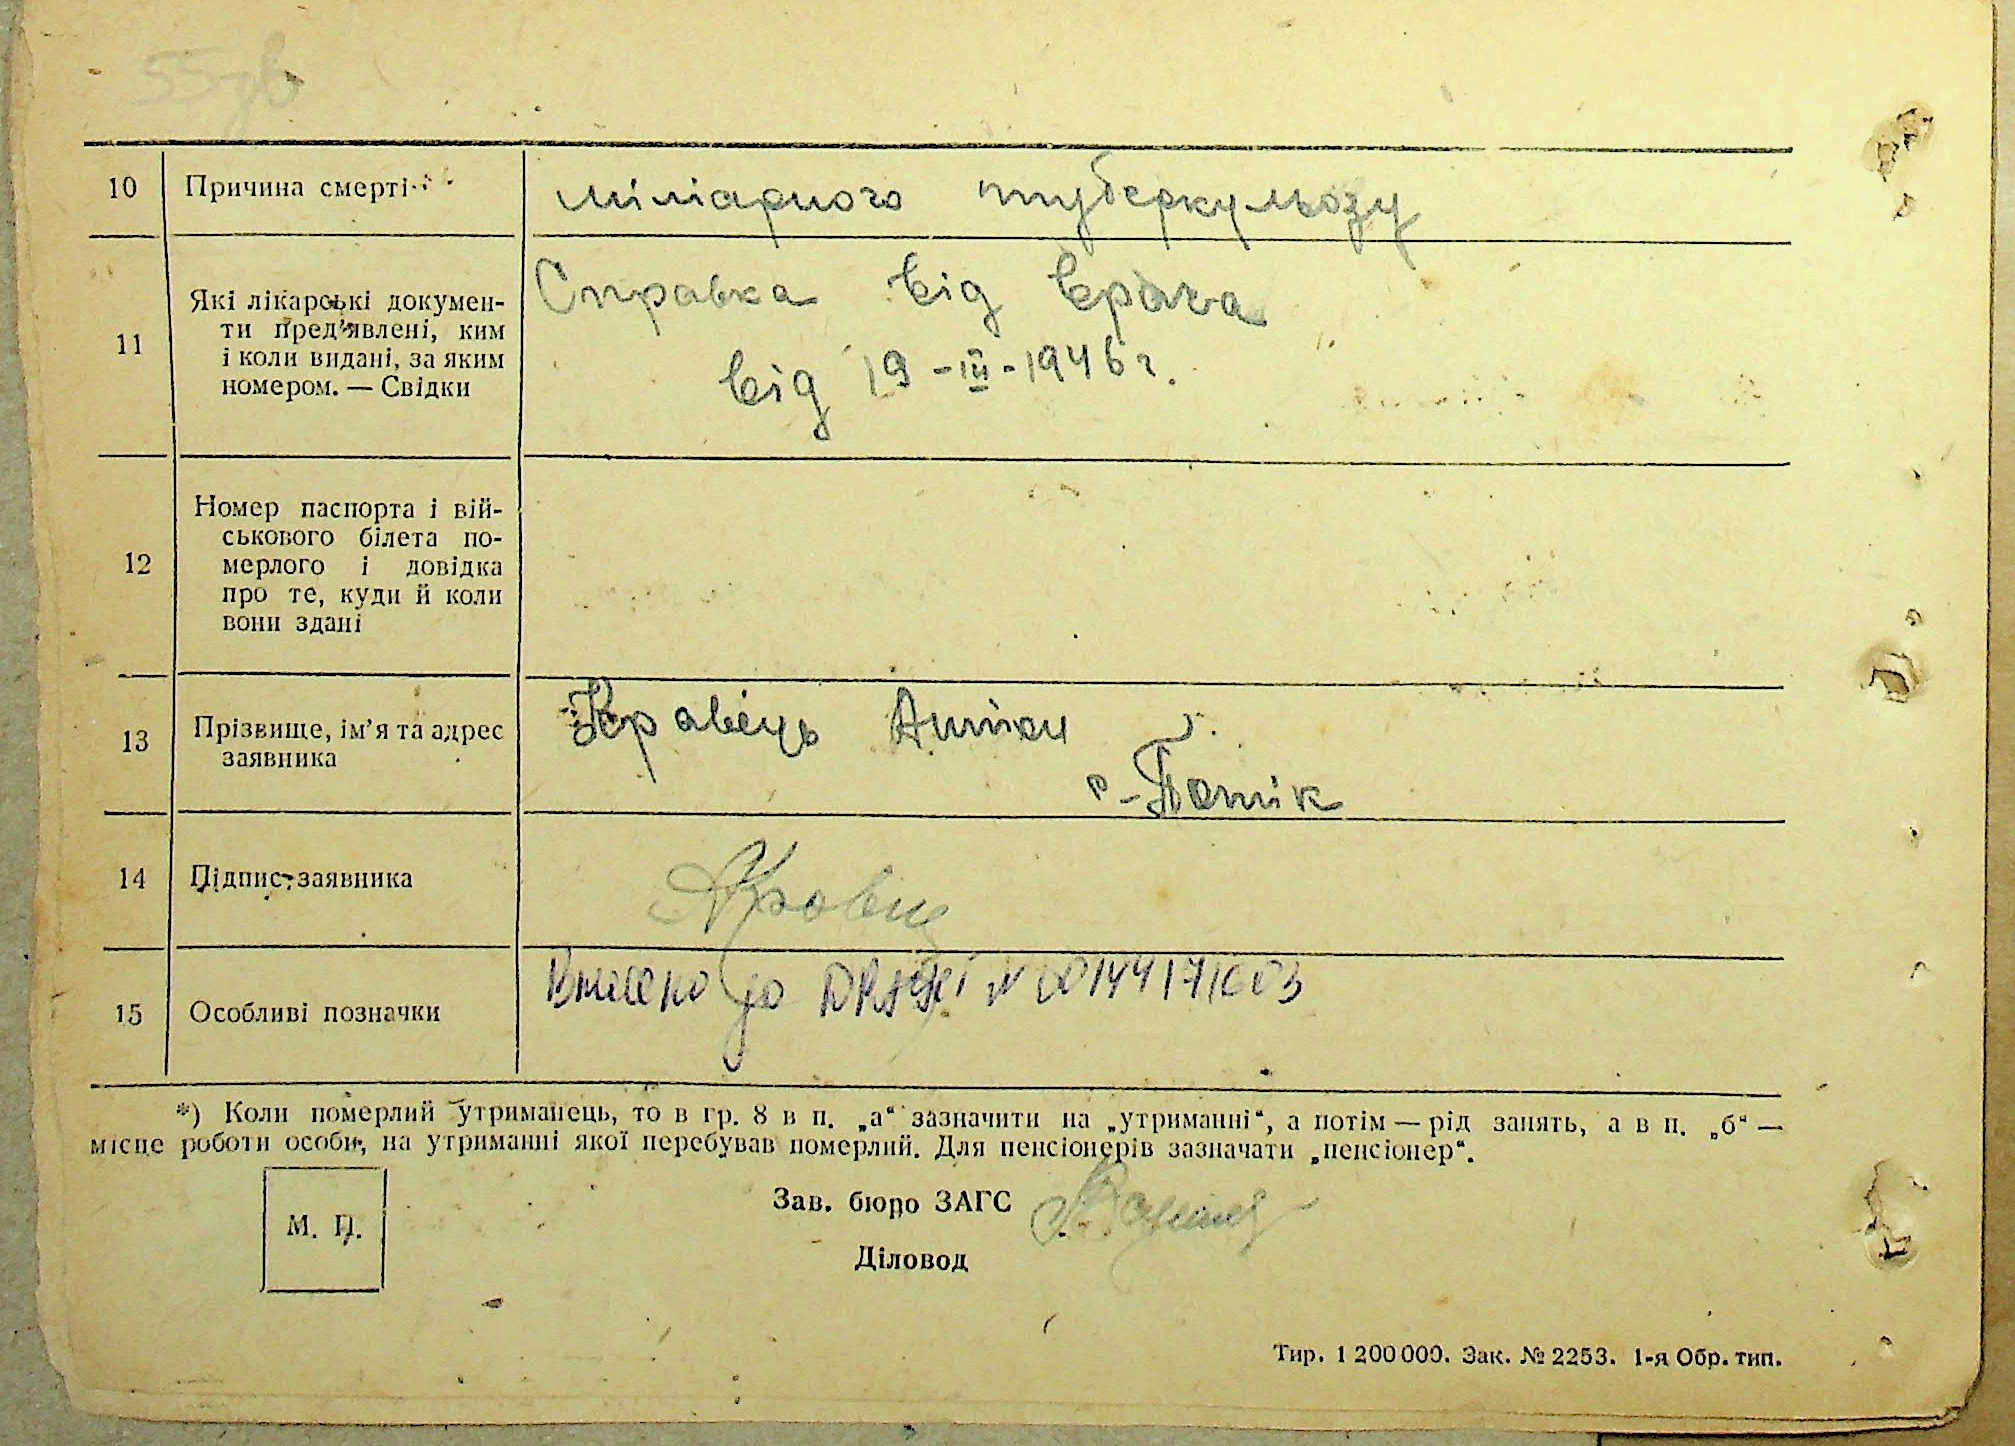 55 зв
10 Причина смерті міліарного туберкульозу
11 Які лікарські докумен-
ти пред'явлені, ким
і коли видані, за яким
номером. — Свідки
Справка від врача
від 19-III-1946 г.
12 Номер паспорта і вій-
ськового білета по-
мерлого і довідка
про те, куди й коли
вони здані
13 Прізвище, ім'я та адрес
заявника
Кравець
с-Потік
14 Підпис заявника Кравець
15 Особливі позначки Внесено до ДРАЦСГ №
*) Коли померлий утриманець, то в гр. 8 в п. „а“ зазначити на „утриманні“, а потім — рід занять, а в п. „б“ —
місце роботи особи, на утриманні якої перебував померлий. Для пенсіонерів зазначати „пенсіонер“.
М. П.
Зав. бюро ЗАГС
Діловод
Тир. 1 200 000. Зак. № 2253. 1-я Обр. тип.